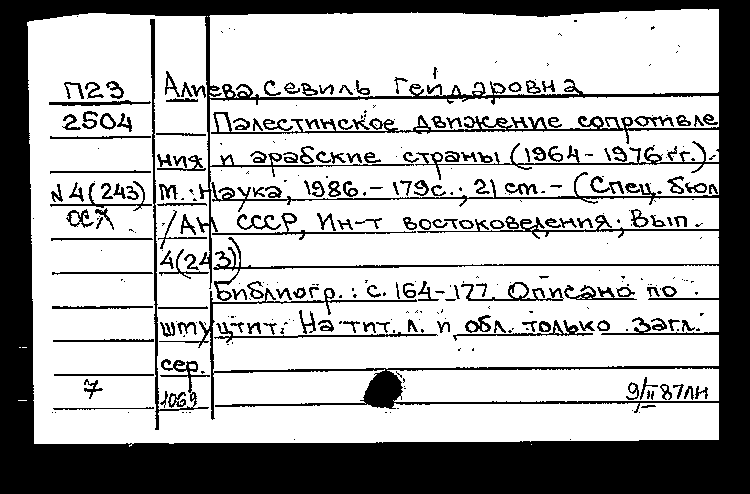 П23 Алиева, Севиль Гейдаровна
2504 Палестинское движение сопротивле
ния и арабские страны (1964-1976 гг.).-
N4(243) М.: Наука, 1986.- 179с.; 21 см.- (Спец. бюл
ОСХ /АН СССР, Ин-т востоковедения; Вып.
4(243)).
Библиогр.: с. 164-177. Описано по
шмуцтит. На тит. л. и обл. только загл.
сер.
7 1069 9/II 87 ЛН